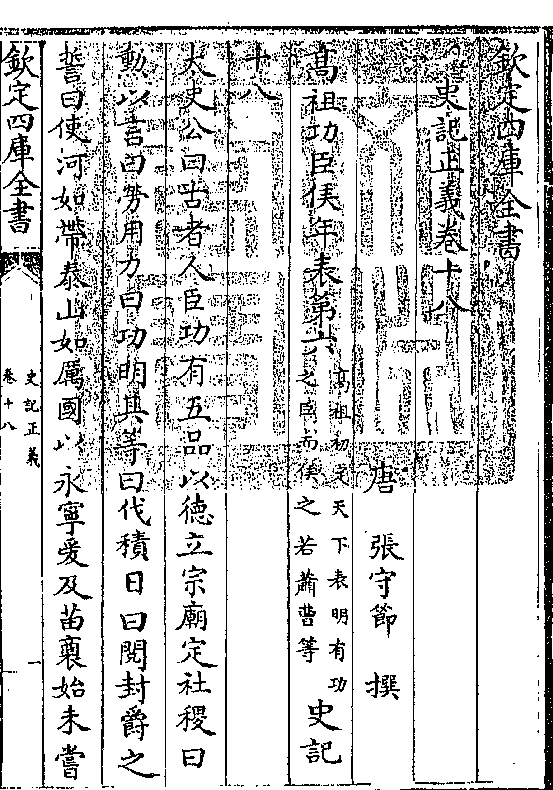 欽定四庫全書
史記正義卷十八
唐 張守節 撰
高祖功臣侯年表第六
高祖初定天下表明有功
之臣而侯之若蕭曹等
史記
十八
太史公曰古者人臣功有五品以德立宗廟定社稷曰
勲以言曰勞用力曰功明其等曰伐積日曰閱封爵之
誓曰使河如帶泰山如厲國以永寧爰及苗裔始未嘗
欽定四庫全書
史記正義
卷十八
一